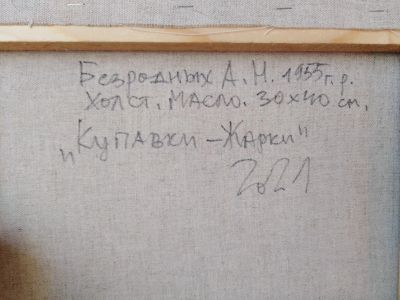 Безродных А.Н. 1955 г.р.
Холст. Масло. 30х40 см.
„Купавки – Жарки"
2021